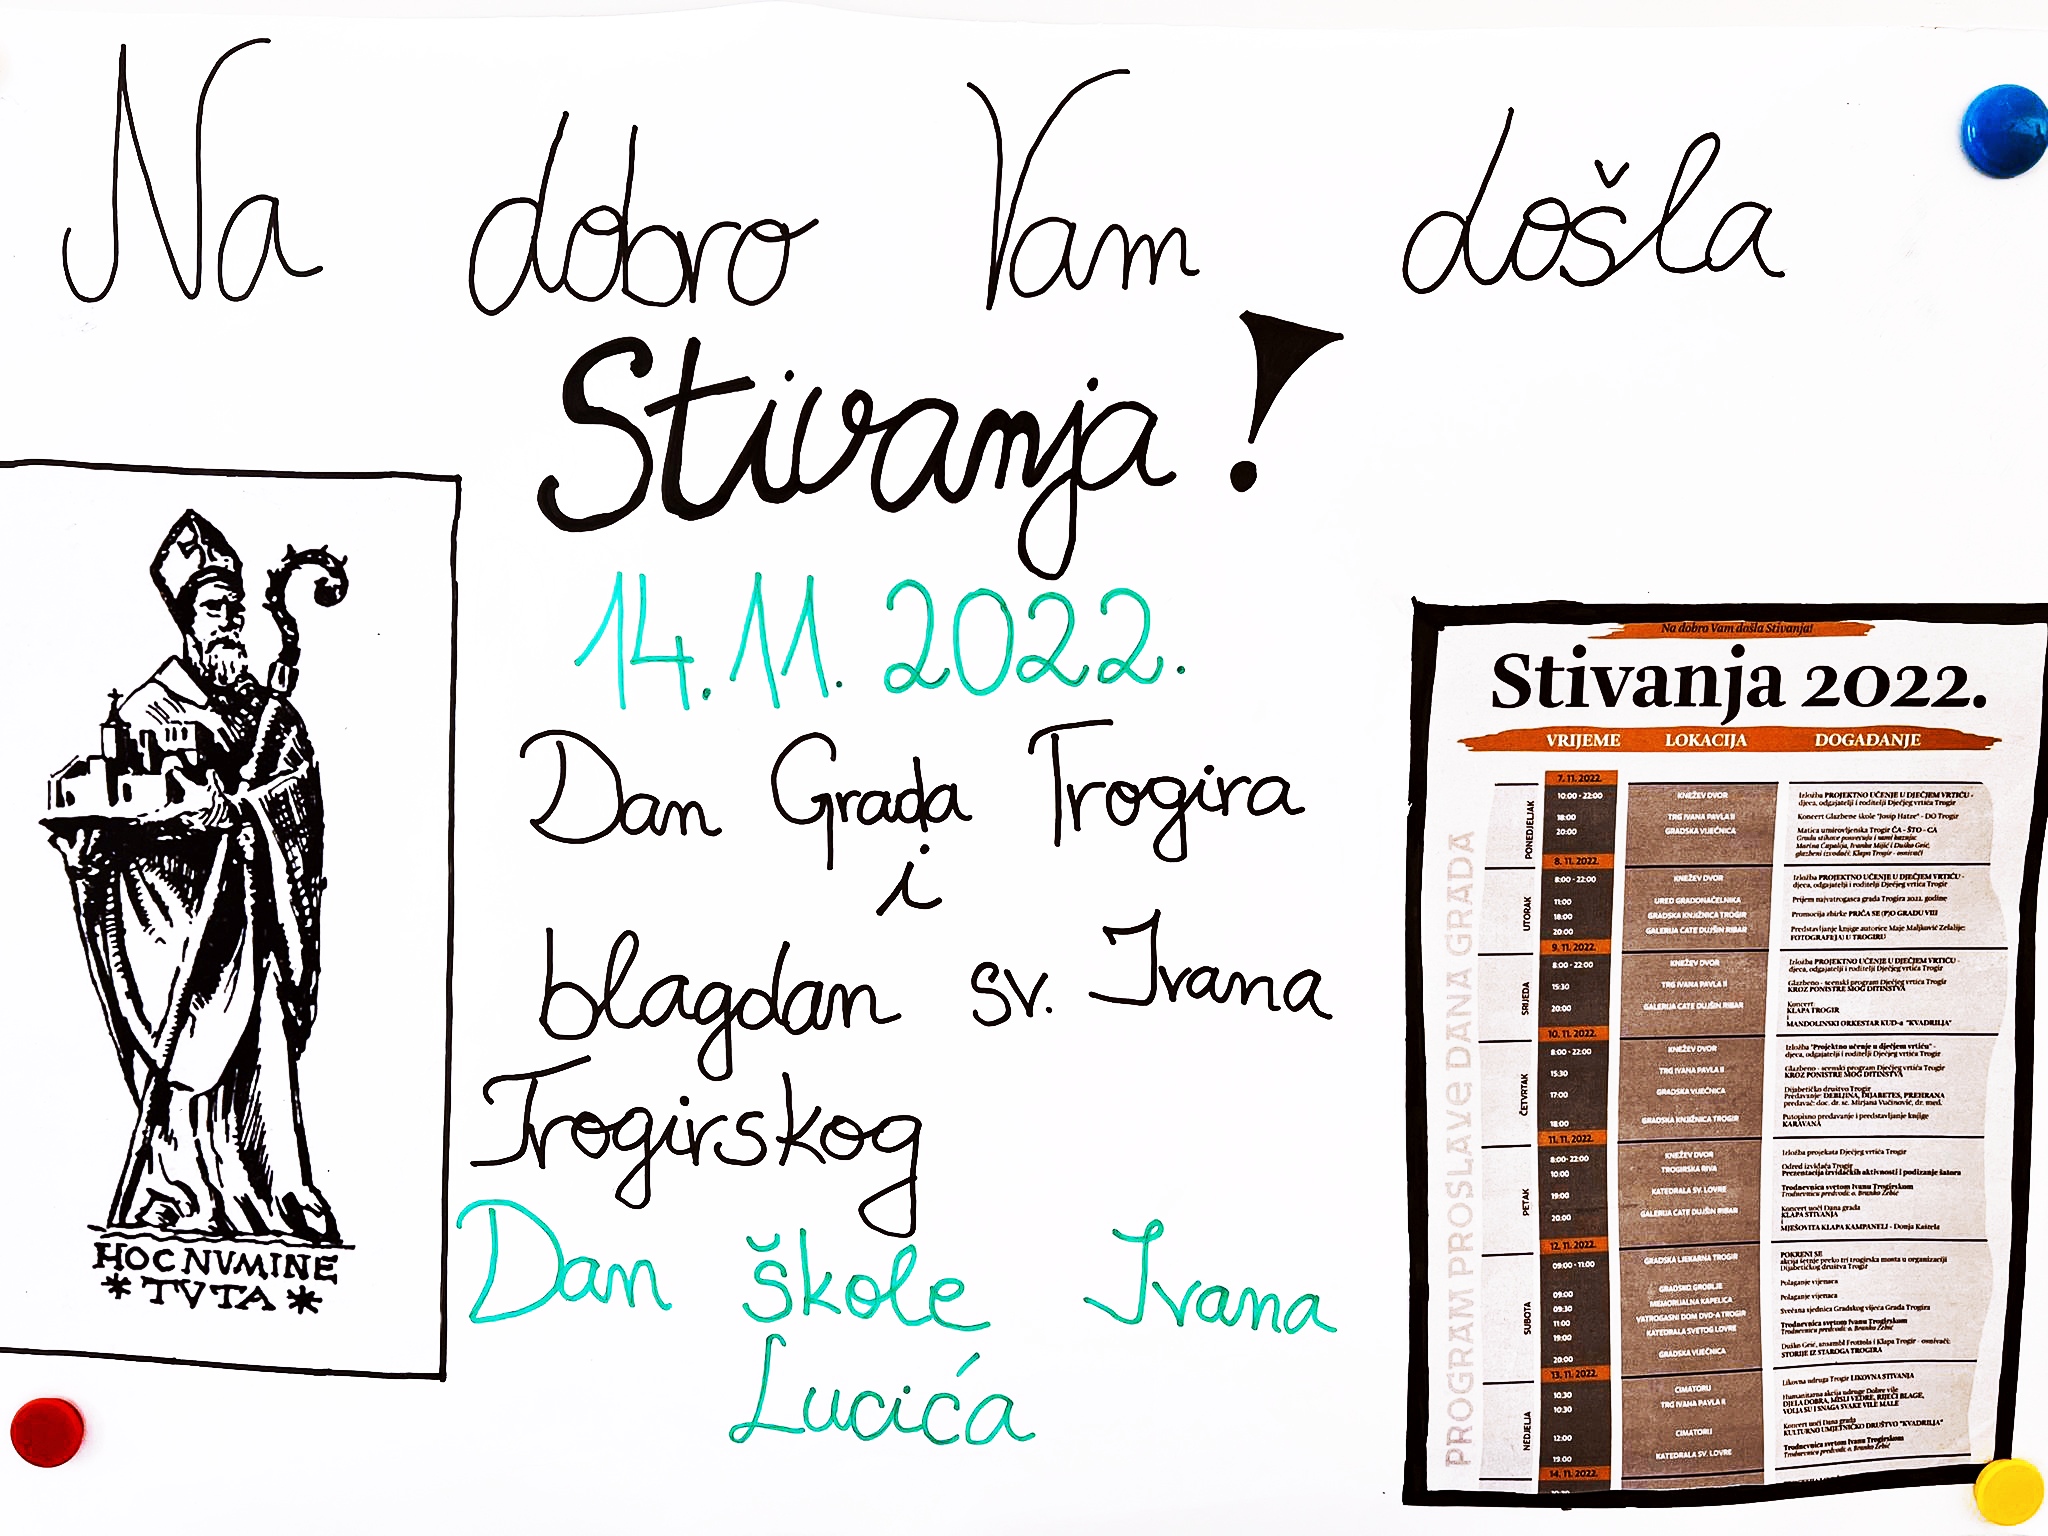 Na dobro Vam došla
Stivanja!
14.11.2022.
Dan Grada Trogira
i
blagdan sv. Ivana
Trogirskog
Dan škole Ivana
Lucića
HOC NVMINE
* TVTA *
Na dobro Vam došla Stivanja!
Stivanja 2022.
VRIJEME LOKACIJA DOGAĐANJE
PROGRAM PROSLAVE DANA GRADA
PONEDJELJAK
7. 11. 2022.
10:00 - 22:00 KNEŽEV DVOR Izložba PROJEKTNO UČENJE U DJEČJEM VRTIĆU -
djeca, odgajatelji i roditelji Dječjeg vrtića Trogir
18:00 TRG IVANA PAVLA II Koncert Glazbene škole "Josip Hatze" - DO Trogir
20:00 GRADSKA VIJEĆNICA Matica umirovljenika Trogir ČA - ŠTO - CA
glazbeni izvođači: Klapa Trogir - osnivači
UTORAK
8. 11. 2022.
8:00 - 22:00 KNEŽEV DVOR Izložba PROJEKTNO UČENJE U DJEČJEM VRTIĆU -
djeca, odgajatelji i roditelji Dječjeg vrtića Trogir
11:00 URED GRADONAČELNIKA Prijem najvatrogasca grada Trogira 2022. godine
18:00 GRADSKA KNJIŽNICA TROGIR Promocija zbirke PRIČA SE (P)O GRADU VIII
20:00 GALERIJA CATE DUJŠIN RIBAR Predstavljanje knjige autorice Maje Maljković Zelalije:
FOTOGRAFE(JA) U TROGIRU
SRIJEDA
9. 11. 2022.
8:00 - 22:00 KNEŽEV DVOR Izložba PROJEKTNO UČENJE U DJEČJEM VRTIĆU -
djeca, odgajatelji i roditelji Dječjeg vrtića Trogir
15:30 TRG IVANA PAVLA II Glazbeno - scenski program Dječjeg vrtića Trogir
KROZ PONISTRE MOG DITINSTVA
20:00 GALERIJA CATE DUJŠIN RIBAR Koncert:
KLAPA TROGIR
i
MANDOLINSKI ORKESTAR KUD-a "KVADRILJA"
ČETVRTAK
10. 11. 2022.
8:00 - 22:00 KNEŽEV DVOR Izložba "Projektno učenje u dječjem vrtiću" -
djeca, odgajatelji i roditelji Dječjeg vrtića Trogir
15:30 TRG IVANA PAVLA II Glazbeno - scenski program Dječjeg vrtića Trogir
KROZ PONISTRE MOG DITINSTVA
17:00 GRADSKA VIJEĆNICA Dijabetičko društvo Trogir
Predavanje: DEBLJINA, DIJABETES, PREHRANA
predavač: doc. dr. sc. Mirjana Vučinović, dr. med.
18:00 GRADSKA KNJIŽNICA TROGIR Putopisno predavanje i predstavljanje knjige
KARAVANA
PETAK
11. 11. 2022.
8:00- 22:00 KNEŽEV DVOR Izložba projekata Dječjeg vrtića Trogir
10:00 TROGIRSKA RIVA Odred izviđača Trogir
Prezentacija izviđačkih aktivnosti i podizanje šatora
19:00 KATEDRALA SV. LOVRE Trodnevnica svetom Ivanu Trogirskom
Trodnevnicu predvodi: o. Branko Žebić
20:00 GALERIJA CATE DUJŠIN RIBAR Koncert uoči Dana grada
KLAPA STIVANJA
i
MJEŠOVITA KLAPA KAMPANELI - Donja Kaštela
SUBOTA
12. 11. 2022.
09:00 - 11:00 GRADSKA LJEKARNA TROGIR POKRENI SE
akcija šetnje preko tri trogirska mosta u organizaciji
Dijabetičkog društva Trogir
09:00 GRADSKO GROBLJE Polaganje vijenaca
09:30 MEMORIJALNA KAPELICA Polaganje vijenaca
11:00 VATROGASNI DOM DVD-A TROGIR Svečana sjednica Gradskog vijeća Grada Trogira
19:00 KATEDRALA SVETOG LOVRE Trodnevnica svetom Ivanu Trogirskom
Trodnevnicu predvodi: o. Branko Žebić
20:00 GRADSKA VIJEĆNICA Duško Geić, ansambl Frottola i Klapa Trogir - osnivači:
STORIJE IZ STAROGA TROGIRA
NEDJELJA
13. 11. 2022.
10.30 CIMATORIJ Likovna udruga Trogir LIKOVNA STIVANJA
10:30 TRG IVANA PAVLA II Humanitarna akcija udruge Dobre vile
DJELA DOBRA, MISLI VEDRE, RIJEČI BLAGE,
VOLJA SU I SNAGA SVAKE VILE MALE
12:00 CIMATORIJ Koncert uoči Dana grada
KULTURNO UMJETNIČKO DRUŠTVO "KVADRILJA"
19:00 KATEDRALA SV. LOVRE Trodnevnica svetom Ivanu Trogirskom
Trodnevnicu predvodi: o. Branko Žebić
14. 11. 2022.